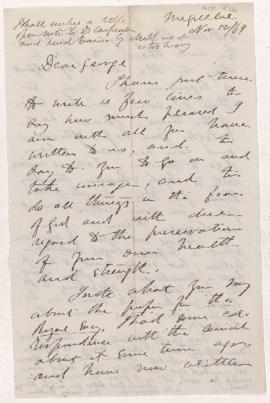 I shall write a
McGill Col.
Nov 10/69
Dear George
I have just time
to write a few lines to
say how much pleased I
am with all you have
written to us, and to
say to you to go on and
take courage, and to
do all things in the fear
of God and with due
regard to the preservation
of your own health
and strength.
I note what you say
about the paper for the
Royal Soc. I had some cor
respondence with the
about it some time ago,
and have now written